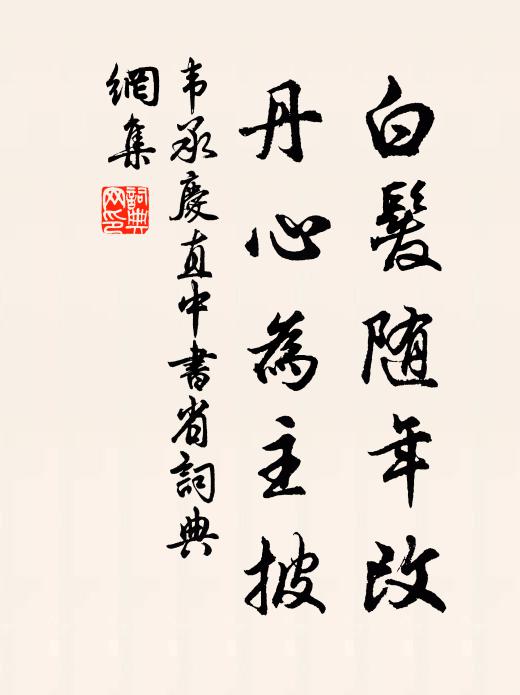 白髮随年改
丹心為主披
韦承慶直中書省詞典
網集
詞典網印